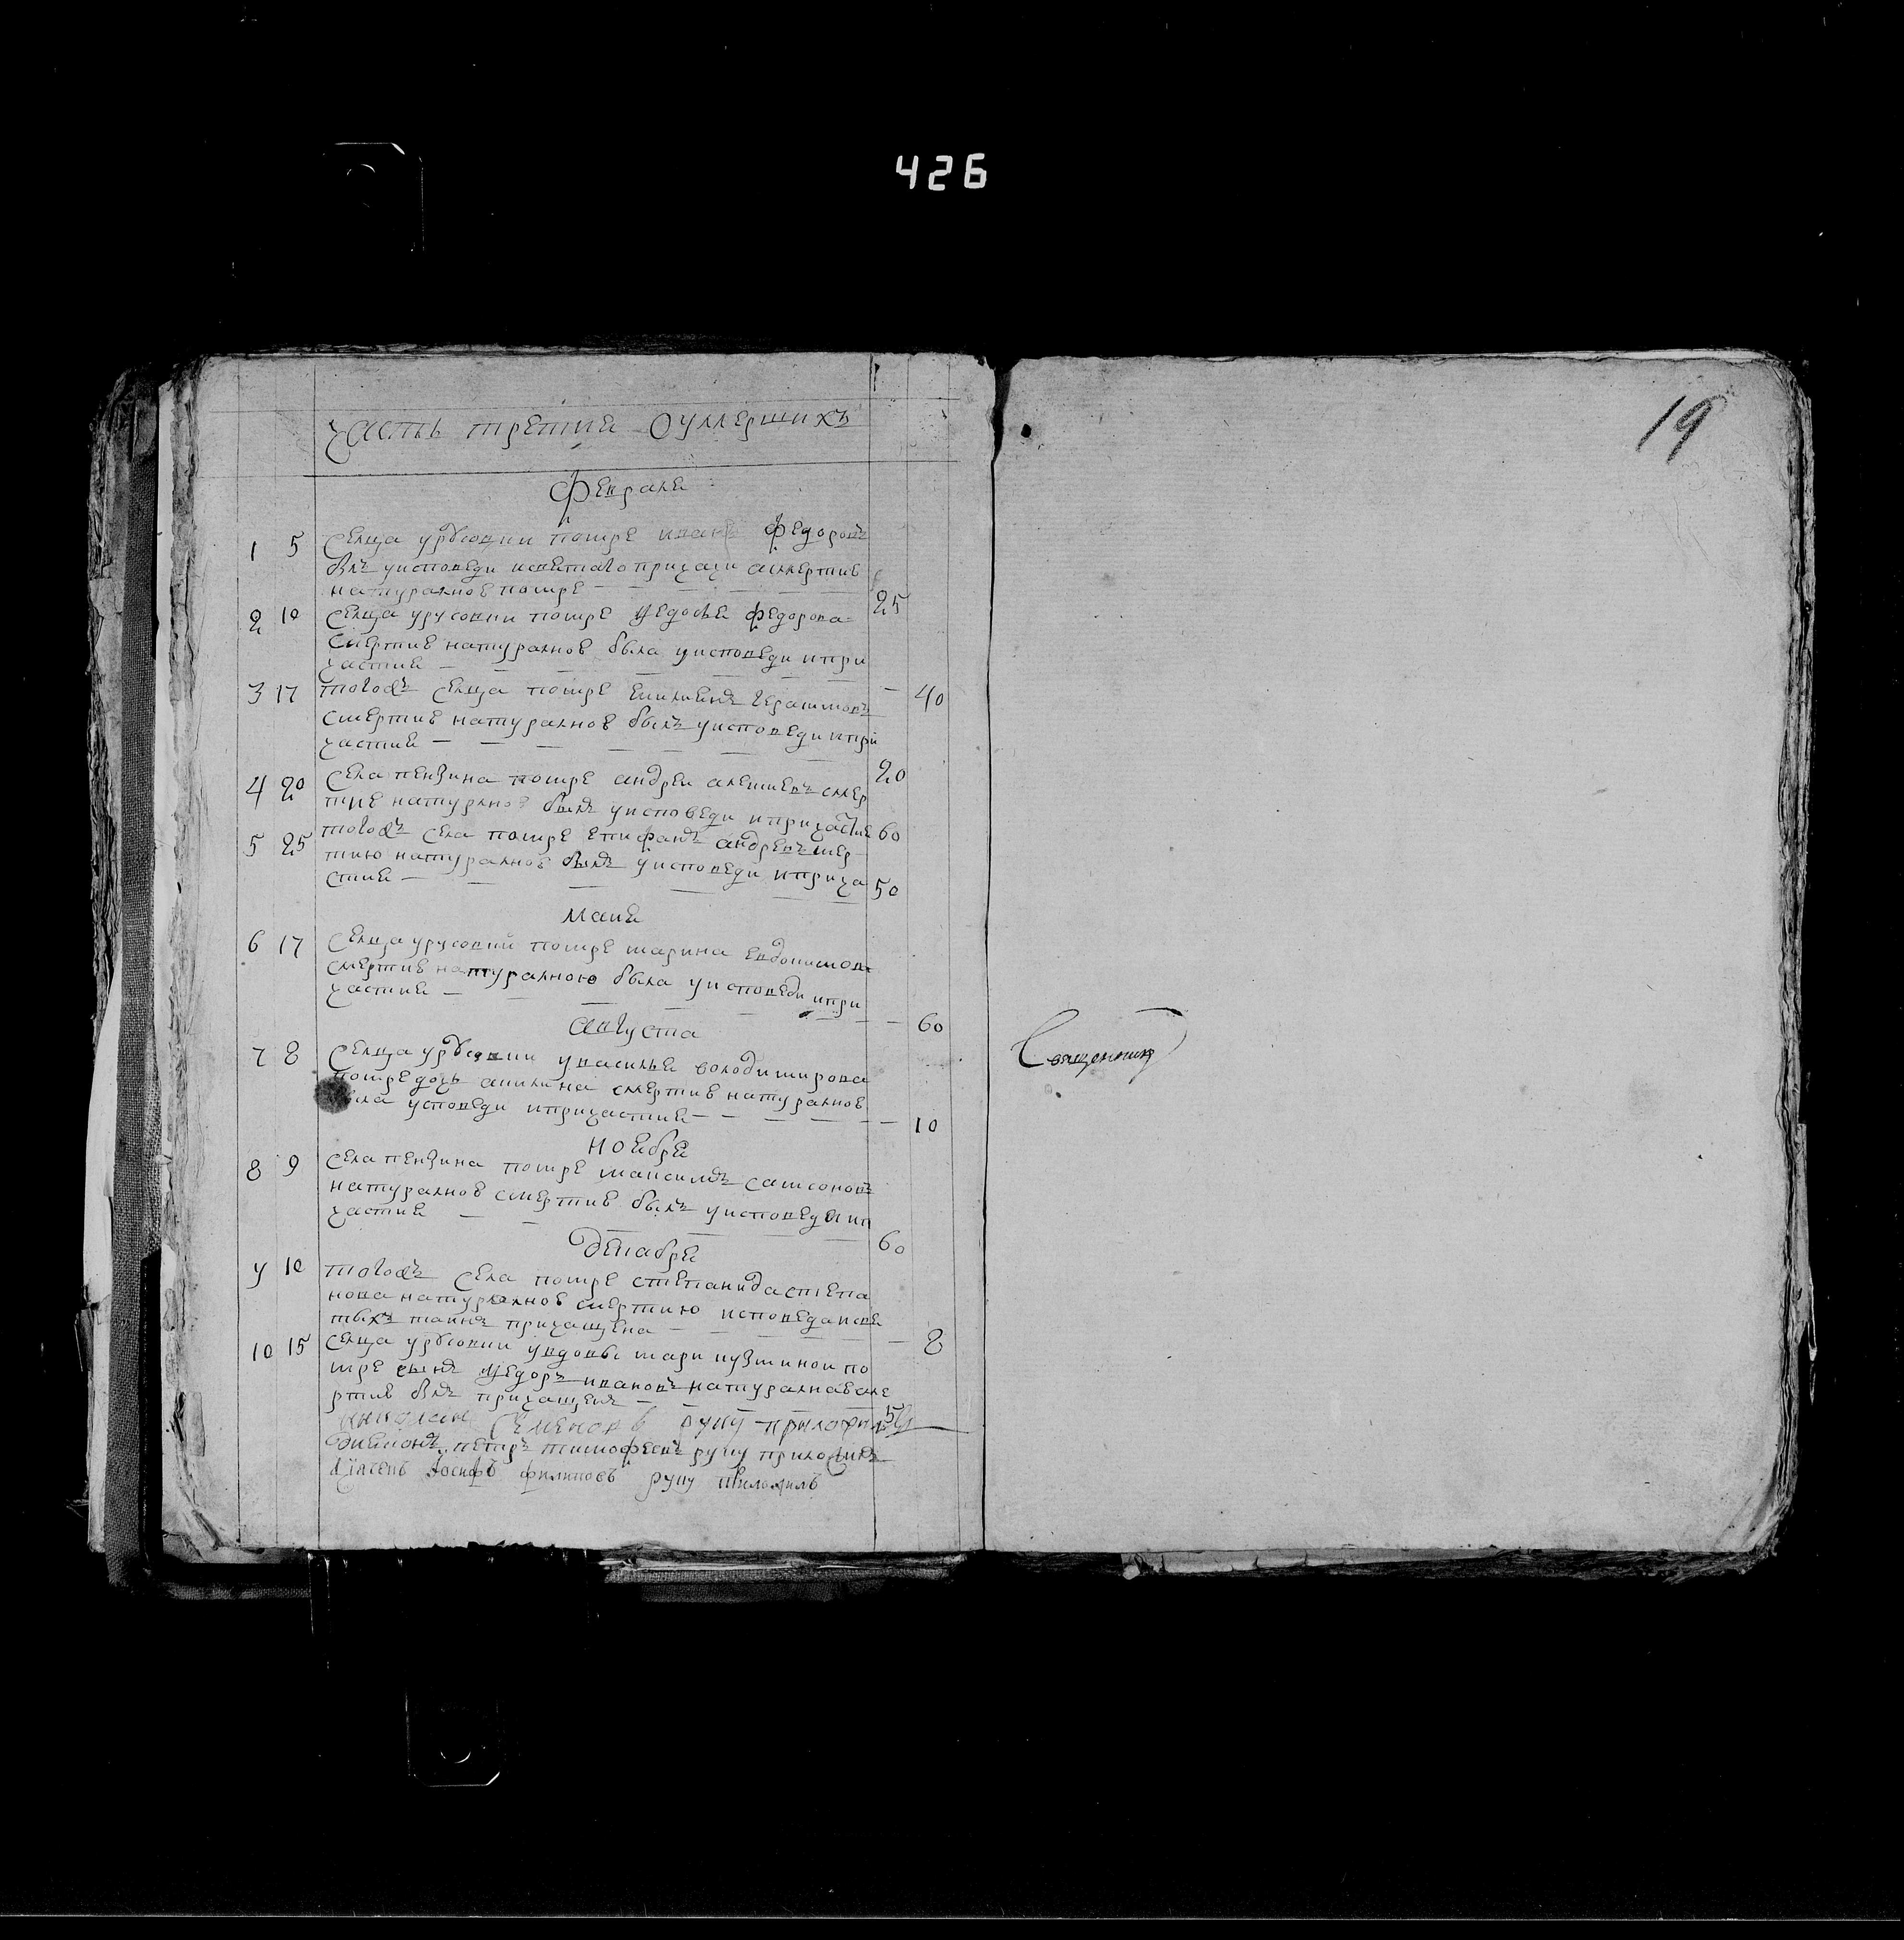 426
19
часть третия оумершихъ
февраля
1 5 селца урусовки помре иванъ федоровъ
былъ уисповеди исвятаго причасия асмертию
натуралною помре
25
2 10 селца урусовки помре федосья федорова
смертию натуралною была уисповеди ипри
частия
40
3 17 тогожъ селца помре емилиянъ герасимовъ
смертию натуралною былъ уисповеди ипри
частия
20
4 20 села пензина помре андреи алексиевъ смер
тию натуралною былъ уисповеди ипричастие
60
5 25 тогожъ села помре епифанъ андреевъ смер
тию натуралною былъ уисповеди иприча
стия
50
маия
6 17 селца урусовки помре марина евдокимова
смертию натуралною была уисповеди ипри
частия
60
августа
7 8 селца урусовки увасилья володимирова
помре дочь акилина смертию натуралною
была усповеди ипричастия
10
ноября
8 9 села пензина помре максимъ самсоновъ
натуралною смертию былъ уисповеди ип
частия
60
декабря
9 10 тогожъ села помре степанида степа
нова натуралною смертию исповеда исвя
тыхъ таинъ причащена
8
10 15 селца урусовки увдовы мари кузминои по
мре сынъ федоръ ивановъ натуралная сме
ртию былъ причащенъ
5
семеновъ руку приложилъ
диаконъ петръ тимофеевъ руку приложилъ
дьячекъ иосифъ филиповъ руку приложилъ
Священникъ